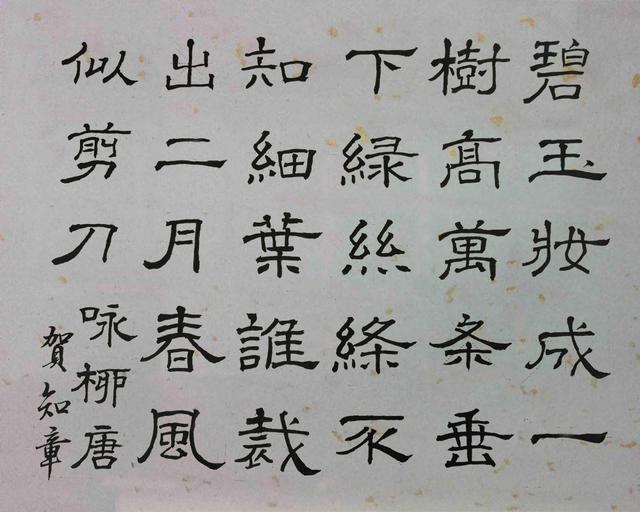 碧玉妝成一
樹高萬条垂
下緑絲絛不
知細葉誰裁
出二月春風
似剪刀
咏柳唐
賀知章